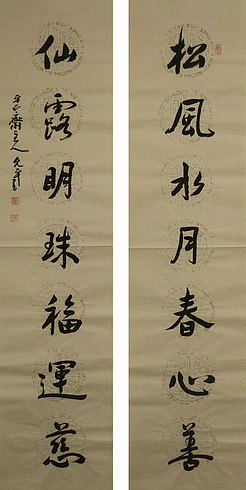 松風水月春心善
仙露明珠福運慈